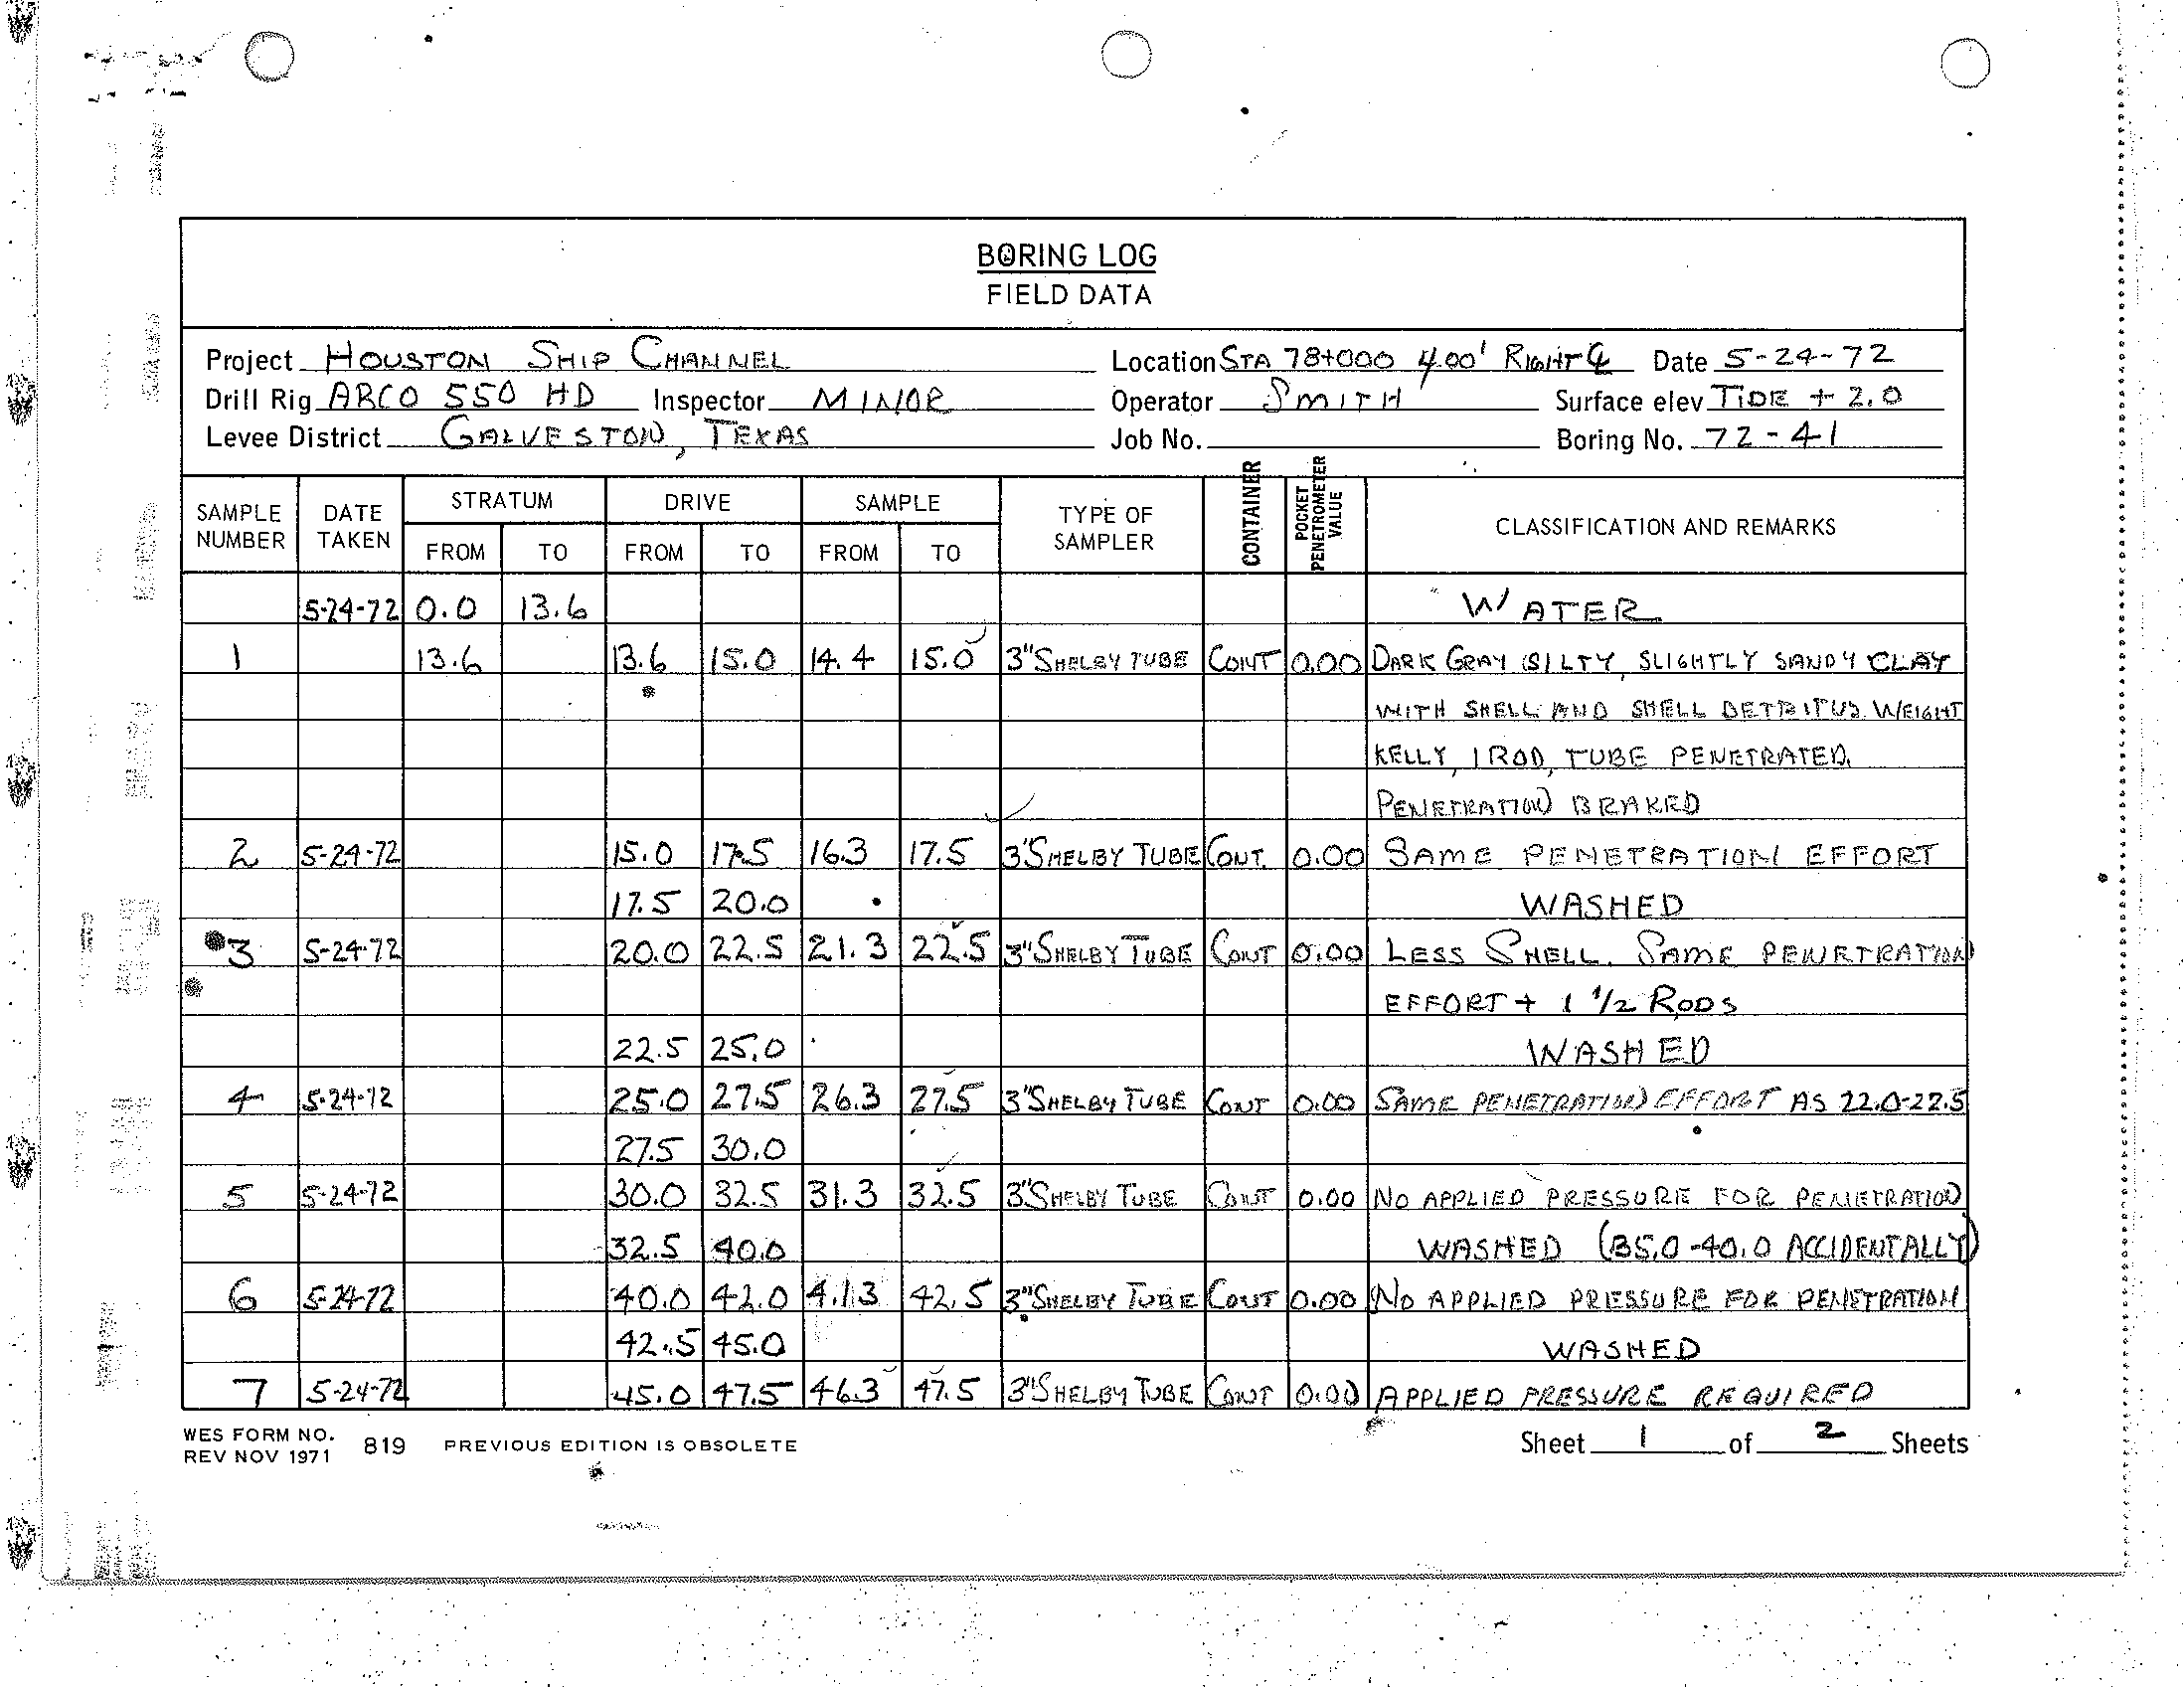 BORING LOG
FIELD DATA
Project HOUSTON SHIP CHANNEL Location STA 78+000 400' RIGHT ℄ Date 5-24-72
Drill Rig ARCO 550 HD Inspector MINOR Operator SMITH Surface elev TIDE + 2.0
Levee District GALVESTON, TEXAS Job No. Boring No. 72-41
SAMPLE NUMBER DATE TAKEN STRATUM FROM TO DRIVE FROM TO SAMPLE FROM TO TYPE OF SAMPLER CONTAINER POCKET PENETROMETER VALUE CLASSIFICATION AND REMARKS
5-24-72 0.0 13.6 WATER
1 13.6 13.6 15.0 14.4 15.0 3" SHELBY TUBE CONT 0.00 DARK GRAY SILTY, SLIGHTLY SANDY CLAY
WITH SHELL AND SHELL DETRITUS. WEIGHT
KELLY, 1 ROD, TUBE PENETRATED.
PENETRATION BRAKED
2 5-24-72 15.0 17.5 16.3 17.5 3" SHELBY TUBE CONT. 0.00 SAME PENETRATION EFFORT
17.5 20.0 WASHED
3 5-24-72 20.0 22.5 21.3 22.5 3" SHELBY TUBE CONT 0.00 LESS SHELL. SAME PENETRATION
EFFORT + 1 1/2 RODS
22.5 25.0 WASHED
4 5-24-72 25.0 27.5 26.3 27.5 3" SHELBY TUBE CONT 0.00 SAME PENETRATION EFFORT AS 22.0-22.5
27.5 30.0
5 5-24-72 30.0 32.5 31.3 32.5 3" SHELBY TUBE CONT 0.00 NO APPLIED PRESSURE FOR PENETRATION
32.5 40.0 WASHED (35.0-40.0 ACCIDENTALLY)
6 5-24-72 40.0 42.0 41.3 42.5 3" SHELBY TUBE CONT 0.00 NO APPLIED PRESSURE FOR PENETRATION
42.5 45.0 WASHED
7 5-24-72 45.0 47.5 46.3 47.5 3" SHELBY TUBE CONT 0.00 APPLIED PRESSURE REQUIRED
WES FORM NO. REV NOV 1971 819 PREVIOUS EDITION IS OBSOLETE Sheet 1 of 2 Sheets